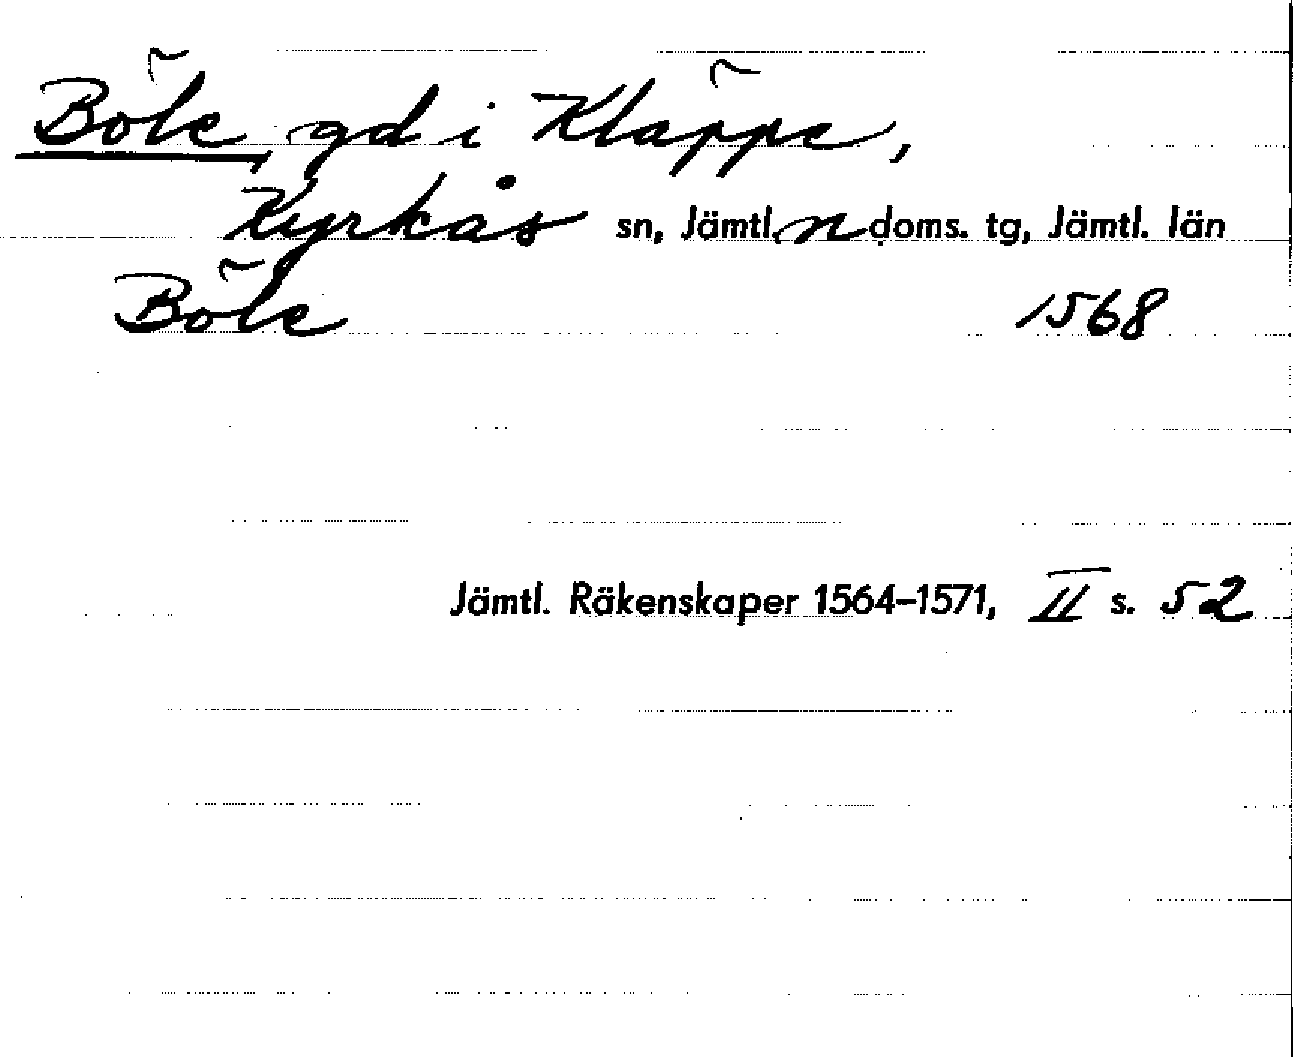 Böle, gd i Kläppe,
Kyrkås sn, Jämtl. n doms. tg, Jämtl. län
Böle 1568
Jämtl. Räkenskaper 1564–1571, II s. 52